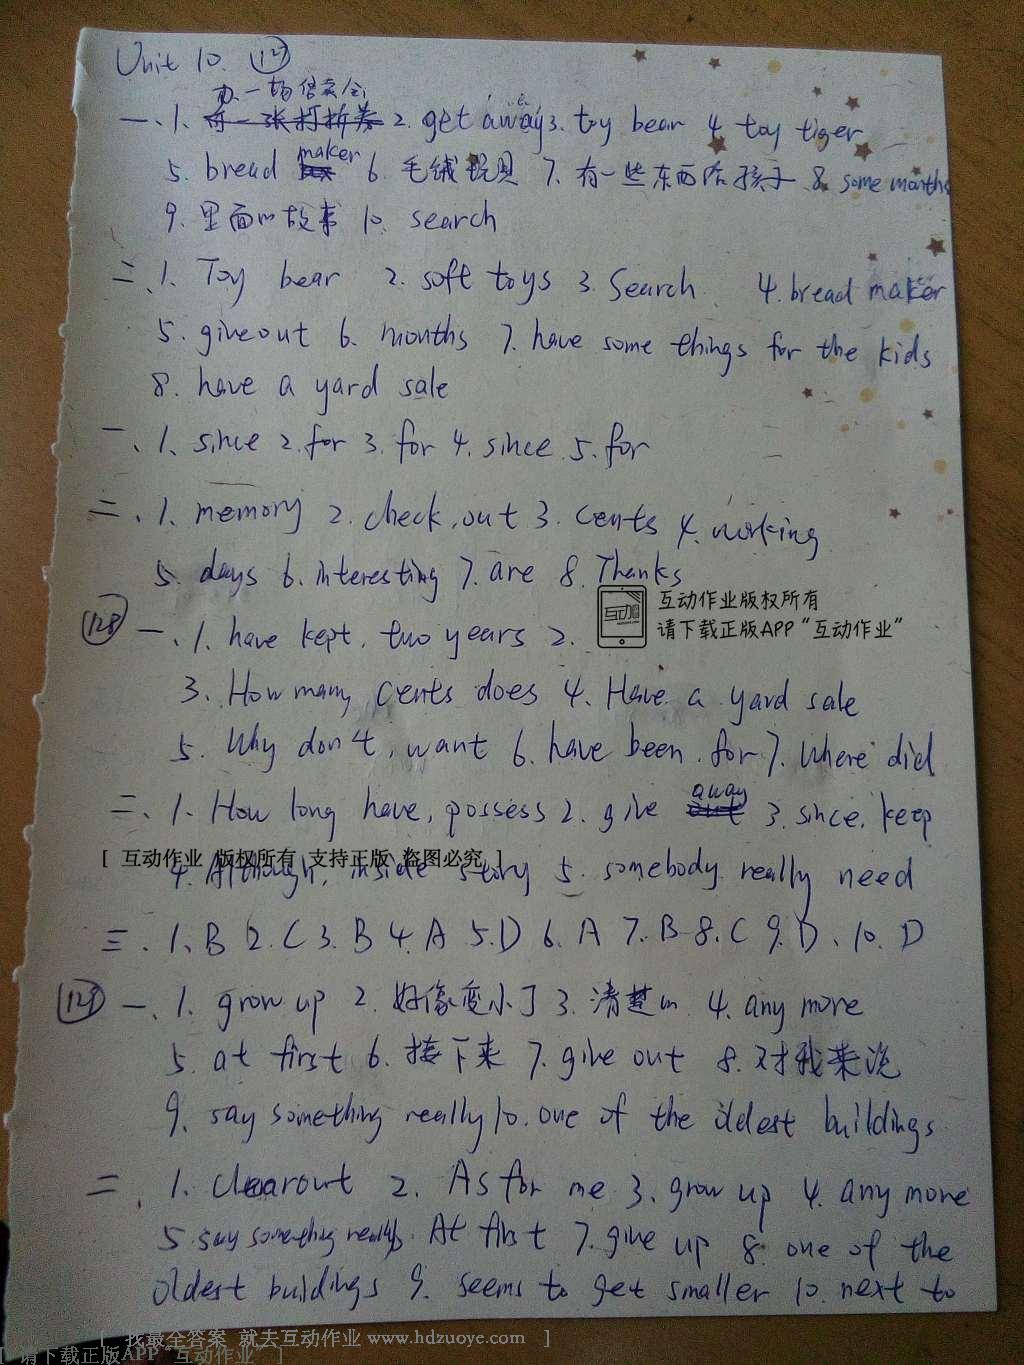 Unit 10. 127
办一场倍卖会
一、1. 2. get away 3. toy bear 4. toy tiger
5. bread maker 6. 毛绒玩具 7. 有一些东西给孩子 8. some months
9. 里面的故事 10. search
二、1. Toy bear 2. soft toys 3. Search 4. bread maker
5. giveout 6. months 7. have some things for the kids
8. have a yard sale
一、1. since 2. for 3. for 4. since 5. for
二、1. memory 2. check, out 3. cents 4. working
5. days 6. interesting 7. are 8. Thanks
互动作业版权所有
请下载正版APP“互动作业”
128 一、1. have kept, two years 2.
3. How many cents does 4. Have a yard sale
5. Why don't, want 6. have been, for 7. Where did
二、1. How long have, possess 2. give away 3. since, keep
[ 互动作业 版权所有 支持正版 盗图必究 ]
4. Although, inside story 5. somebody really need
三、1. B 2. C 3. B 4. A 5. D 6. A 7. B 8. C 9. D、10. D
129 一、1. grow up 2. 好像变小了 3. 清楚的 4. any more
5. at first 6. 接下来 7. give out 8. 对我来说
9. say something really 10. one of the oldest buildings
二、1. clearout 2. As for me 3. grow up 4. any more
5. say something really 6. At first 7. give up 8. one of the
oldest buildings 9. seems to get smaller 10. next to
[ 找最全答案 就去互动作业 www.hdzuoye.com ]
[ 请下载正版APP“互动作业” ]